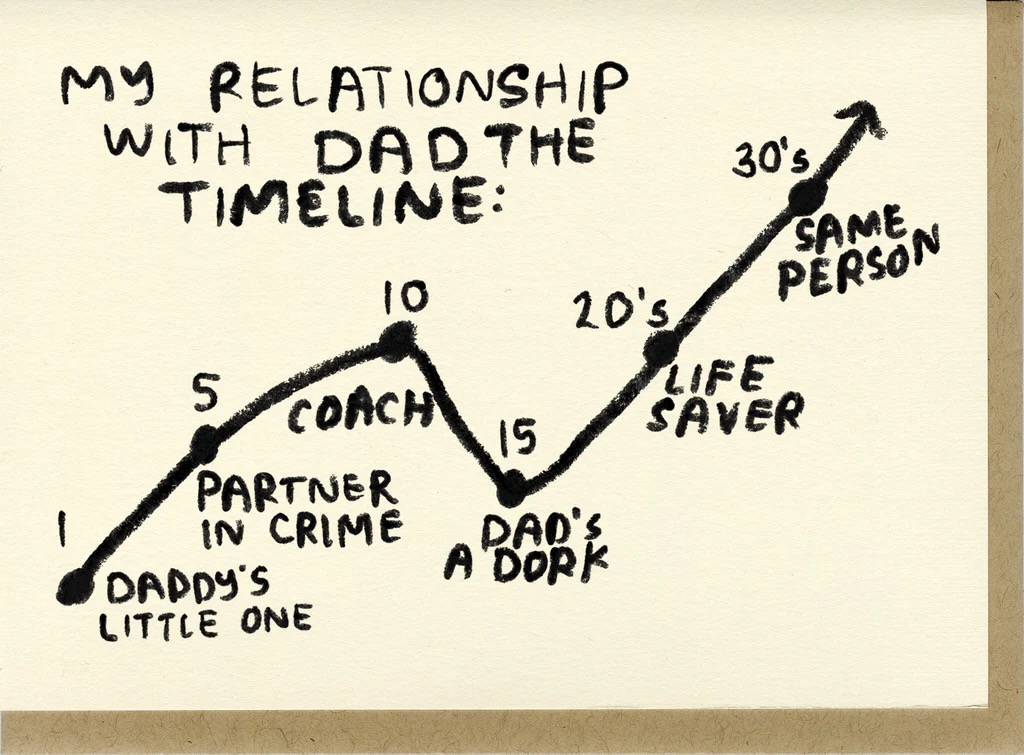 MY RELATIONSHIP
WITH DAD THE
TIMELINE:
1
DADDY'S
LITTLE ONE
5
PARTNER
IN CRIME
10
COACH
15
DAD'S
A DORK
20's
LIFE
SAVER
30's
SAME
PERSON